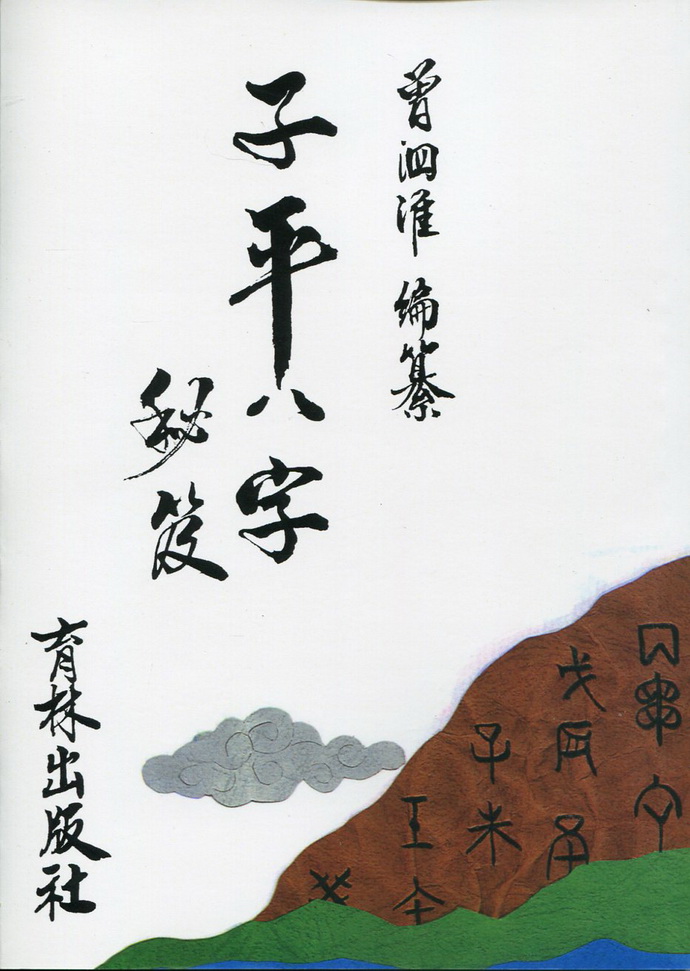 曾泗淮 編纂
子平八字
秘笈
育林出版社